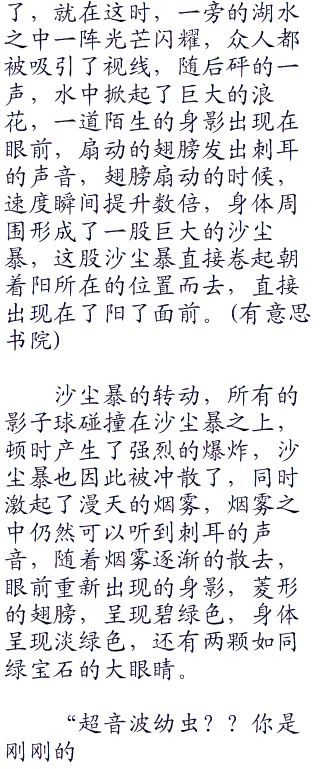 了，就在这时，一旁的湖水
之中一阵光芒闪耀，众人都
被吸引了视线，随后砰的一
声，水中掀起了巨大的浪
花，一道陌生的身影出现在
眼前，扇动的翅膀发出刺耳
的声音，翅膀扇动的时候，
速度瞬间提升数倍，身体周
围形成了一股巨大的沙尘
暴，这股沙尘暴直接卷起朝
着阳所在的位置而去，直接
出现在了阳了面前。(有意思
书院)
沙尘暴的转动，所有的
影子球碰撞在沙尘暴之上，
顿时产生了强烈的爆炸，沙
尘暴也因此被冲散了，同时
激起了漫天的烟雾，烟雾之
中仍然可以听到刺耳的声
音，随着烟雾逐渐的散去，
眼前重新出现的身影，菱形
的翅膀，呈现碧绿色，身体
呈现淡绿色，还有两颗如同
绿宝石的大眼睛。
“超音波幼虫？？你是
刚刚的